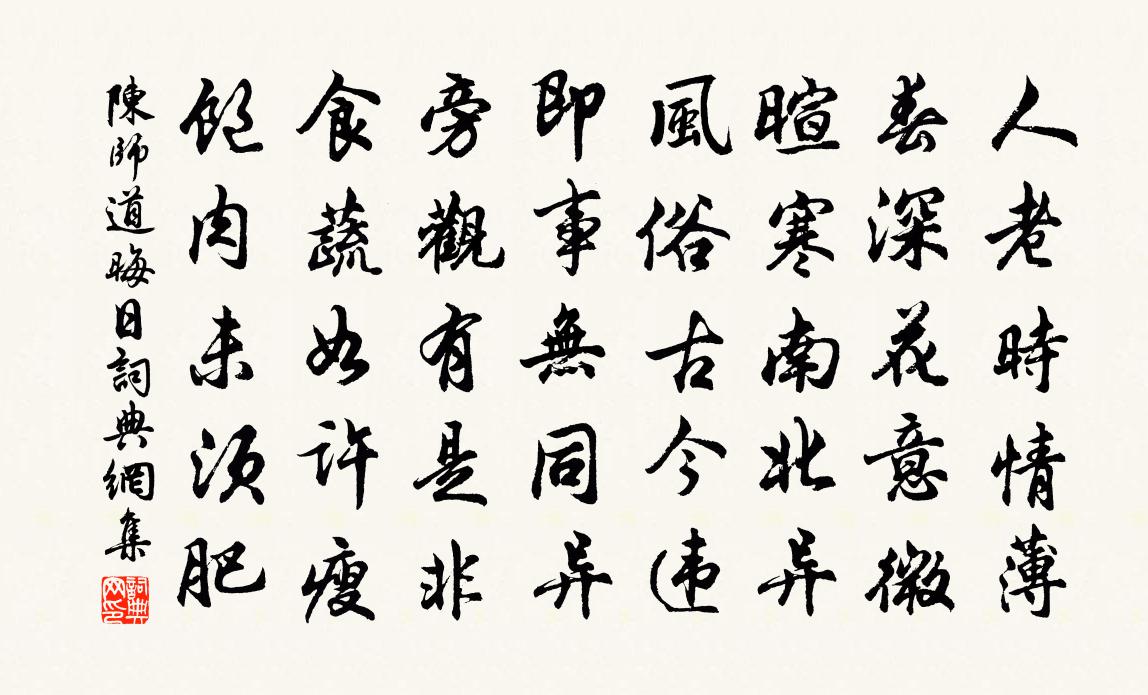 人老時情薄
春深花意微
暄寒南北异
風俗古今違
即事無同异
旁觀有是非
食蔬如許瘦
飽肉未須肥
陳師道晦日詞典網集
詞典網印